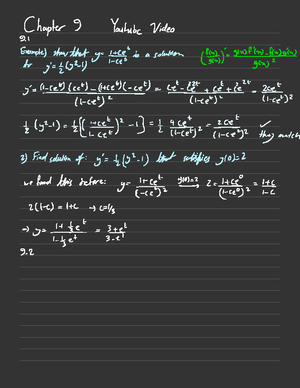 Chapter 9 Youtube Video
9.1
Example) show that y = (1+ce^t)/(1-ce^t) is a solution (f(x)/g(x))' = (g(x)f'(x) - f(x)g'(x))/g(x)^2
for y' = 1/2(y^2-1)
y' = ((1-ce^t)(ce^t) - (1+ce^t)(-ce^t))/(1-ce^t)^2 = (ce^t - c^2e^2t + ce^t + c^2e^2t)/(1-ce^t)^2 = 2ce^t/(1-ce^t)^2
1/2(y^2-1) = 1/2[((1+ce^t)/(1-ce^t))^2 - 1] = 1/2 4ce^t/(1-ce^t)^2 = 2ce^t/(1-ce^t)^2 ✓
they match
2) Find solution of: y' = 1/2(y^2-1) that satisfies y(0)=2
we found this before: y = (1+ce^t)/(1-ce^t) y(0)=2 → 2 = (1+ce^0)/(1-ce^0) = (1+c)/(1-c)
2(1-c) = 1+c → c=1/3
→ y = (1+1/3e^t)/(1-1/3e^t) = (3+e^t)/(3-e^t)
9.2